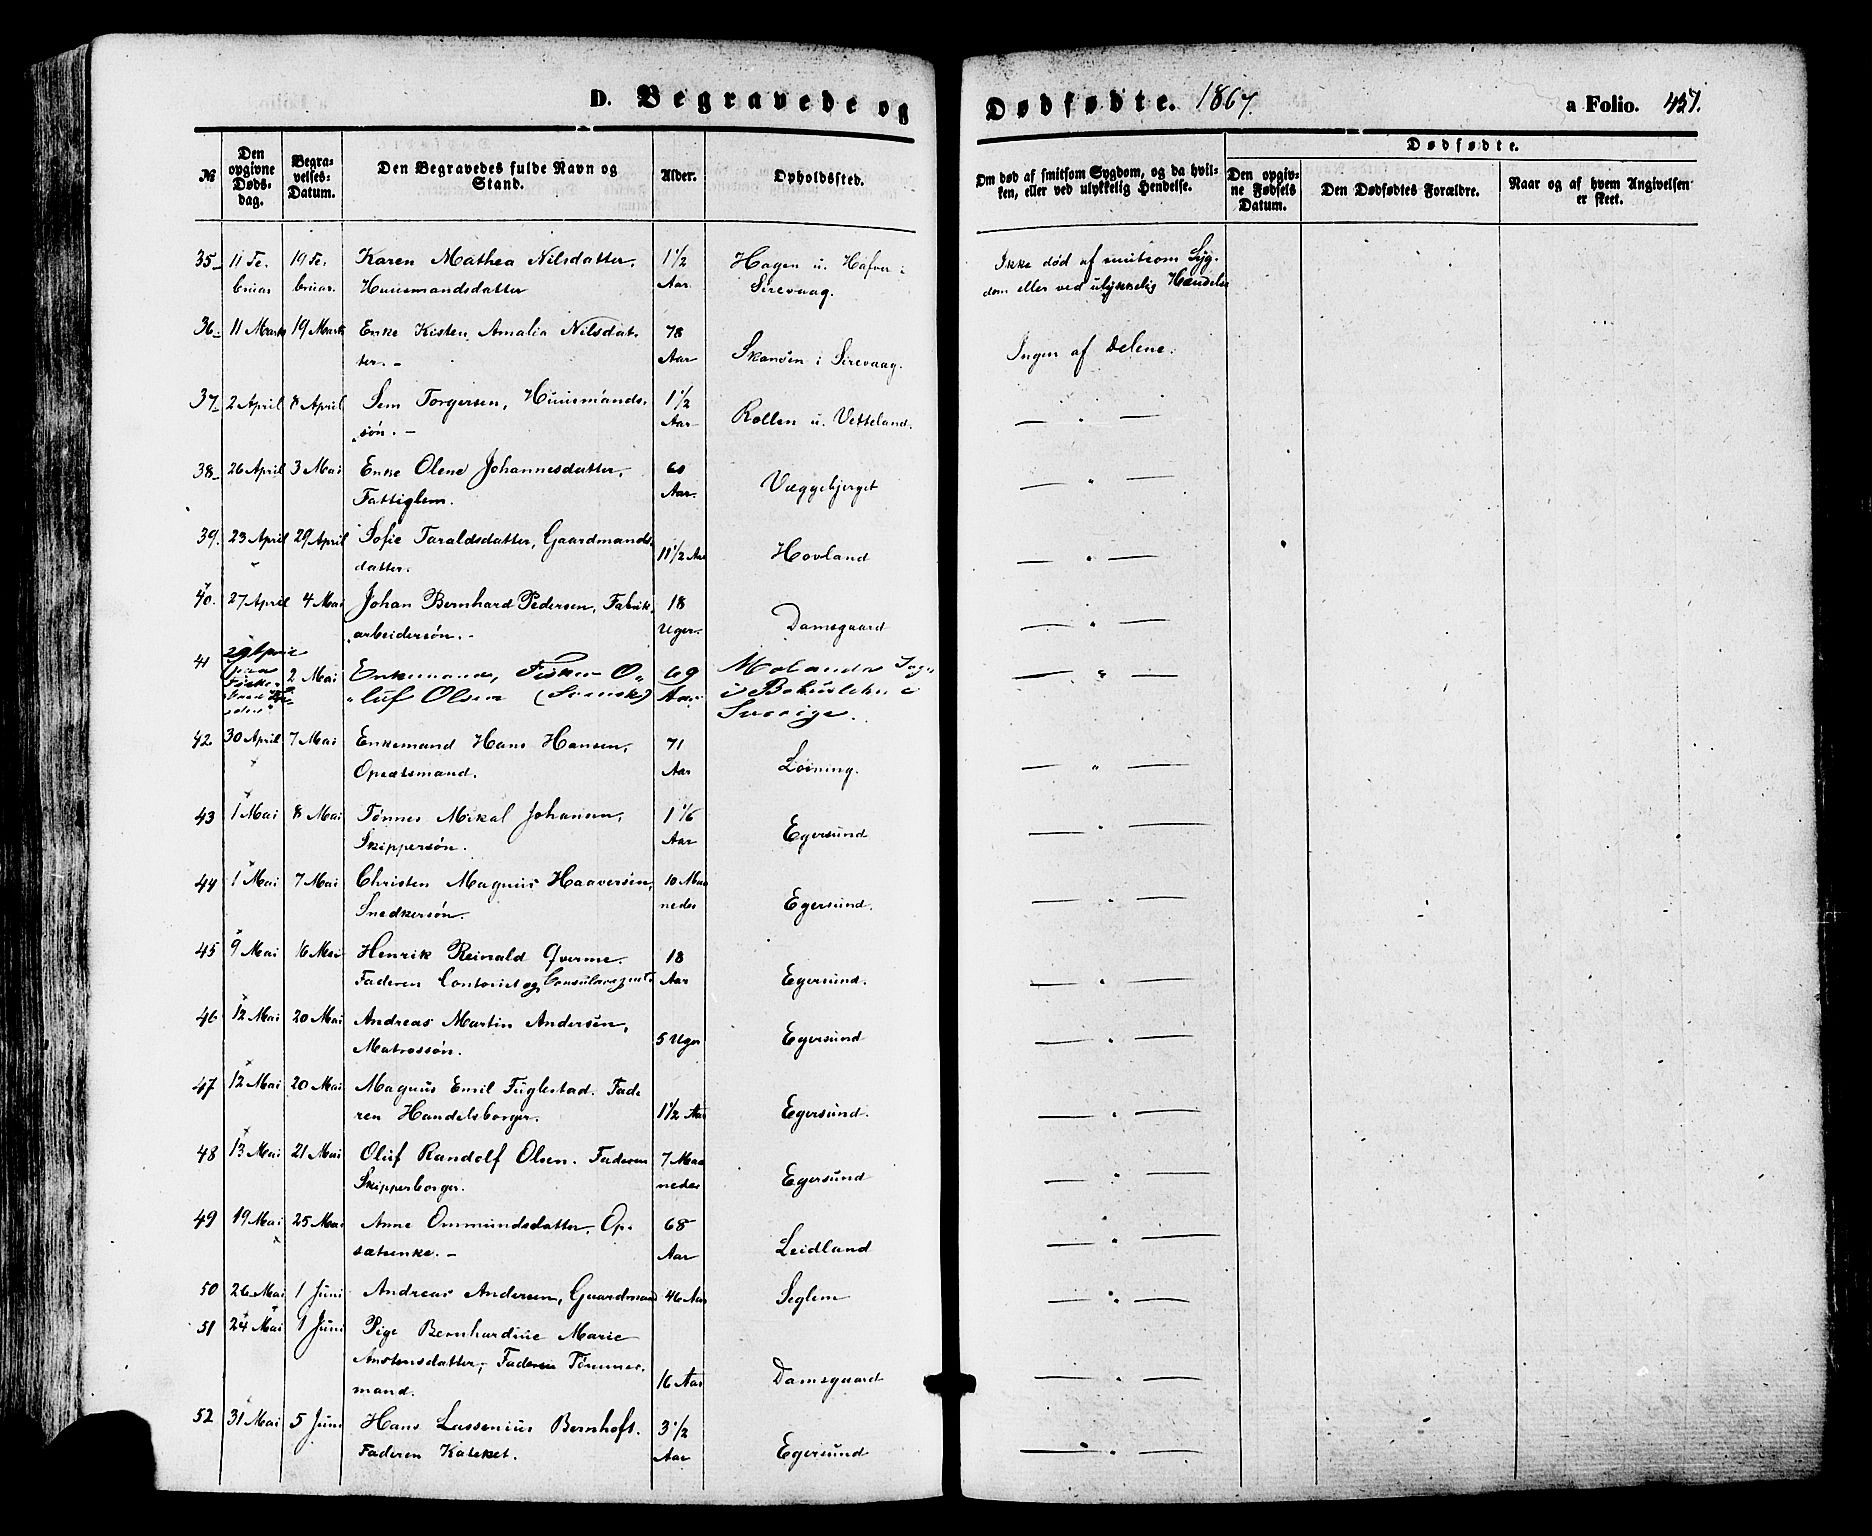 D. Begravede og
Dødfødte. 1867.
a Folio. 457.
№
Den opgivne Døds-dag.
Begra-velses-Datum.
Den Begravedes fulde Navn og Stand.
Alder.
Opholdssted.
Om død af smitsom Sygdom, og da hvil-ken, eller ved ulykkelig Hendelse.
Dødfødte.
Den opgiv-ne Fødsels Datum.
Den Dødfødtes Forældre.
Naar og af hvem Angivelsen er skeet.
35 11 Fe- 19 Fe. Karen Mathea Nilsdatter, 1 1/2 Hagen u. Hafver i Ikke død af smitsom Syg-
bruar bruar. Huusmandsdatter Aar. Sirevaag. dom eller ved ulykkelig Hændelse
36 11 Marts 19 Marts Enke Kisten Amalia Nilsdat- 78
ter. - Aar Skansen i Sirevaag. Ingen af Delene.
37 2 April 8 April Sem Torgersen, Huusmands- 1 1/2
søn. - Aar Rollen u. Vetteland. — " —
38 26 April 3 Mai Enke Olene Johannesdatter, 60
Fattiglem. Aar. Væggebjerget — " —
39. 23 April 29 April Sofie Taraldsdatter, Gaardmands-
datter. 11 1/2 Aar Hovland — " —
40. 27 April 4 Mai Johan Bernhard Pedersen, Fabrik- 18
arbeidersøn. - Uger. Damsgaard — " —
41 29 April 2 Mai Enkemand, Fisker O- 69 Molanda Sogn — " —
"luf Olsen (Svensk) Aar i Bohuslehn i
Sverrige.
42 30 April 7 Mai Enkemand Hans Hansen, 71
Opsætsmand. Aar Løining. — " —
43 1 Mai 8 Mai Tønnes Mikal Johansen, 1 1/6
Skippersøn. Aar Egersund — " —
44 1 Mai 7 Mai Christen Magnus Haaversen, 10 Maa
Snedkersøn. neder Egersund. — " —
45 9 Mai 16 Mai Henrik Reinald Qverme. 18
Faderen Contorist og Consularagent Aar Egersund. — " —
46 12 Mai 20 Mai Andreas Martin Andersen,
Matrossøn. 5 Uger Egersund — " —
47 12 Mai 20 Mai Magnus Emil Fuglestad. Fade
ren Handelsborger. 1 1/2 Aar Egersund. — " —
48 13 Mai 21 Mai Oluf Randolf Olsen. Faderen 7 Maa
Skipperborger. neder Egersund — " —
49 19 Mai 25 Mai Anne Ommundsdatter, Op- 68
sætsenke. - Aar Leidland — " —
50 26 Mai 1 Juni Andreas Andersen, Gaardmand 46 Aar Seglem — " —
51 24 Mai 1 Juni Pige Bernhardine Marie
Anstensdatter, Faderen Tømmer-
mand. 16 Aar Damsgaard — " —
52 31 Mai 5 Juni Hans Lassenius Bernhoft. 3 1/2
Faderen Kateket. Aar Egersund — " —